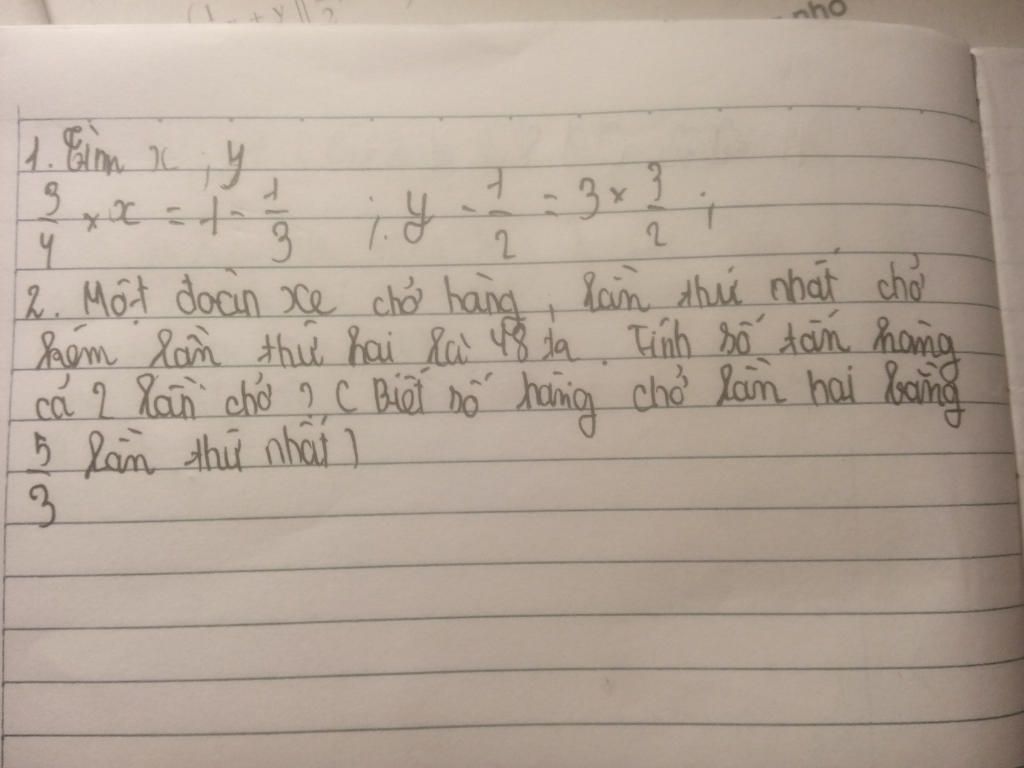 nhỏ
1. Tìm x ; y
3/4 × x = 1 - 1/3 ; y - 1/2 = 3 × 3/2 ;
2. Một đoàn xe chở hàng, lần thứ nhất chở
kém lần thứ hai là 48 tạ. Tính số tấn hàng
cả 2 lần chở ? ( Biết số hàng chở lần hai bằng
5/3 lần thứ nhất )